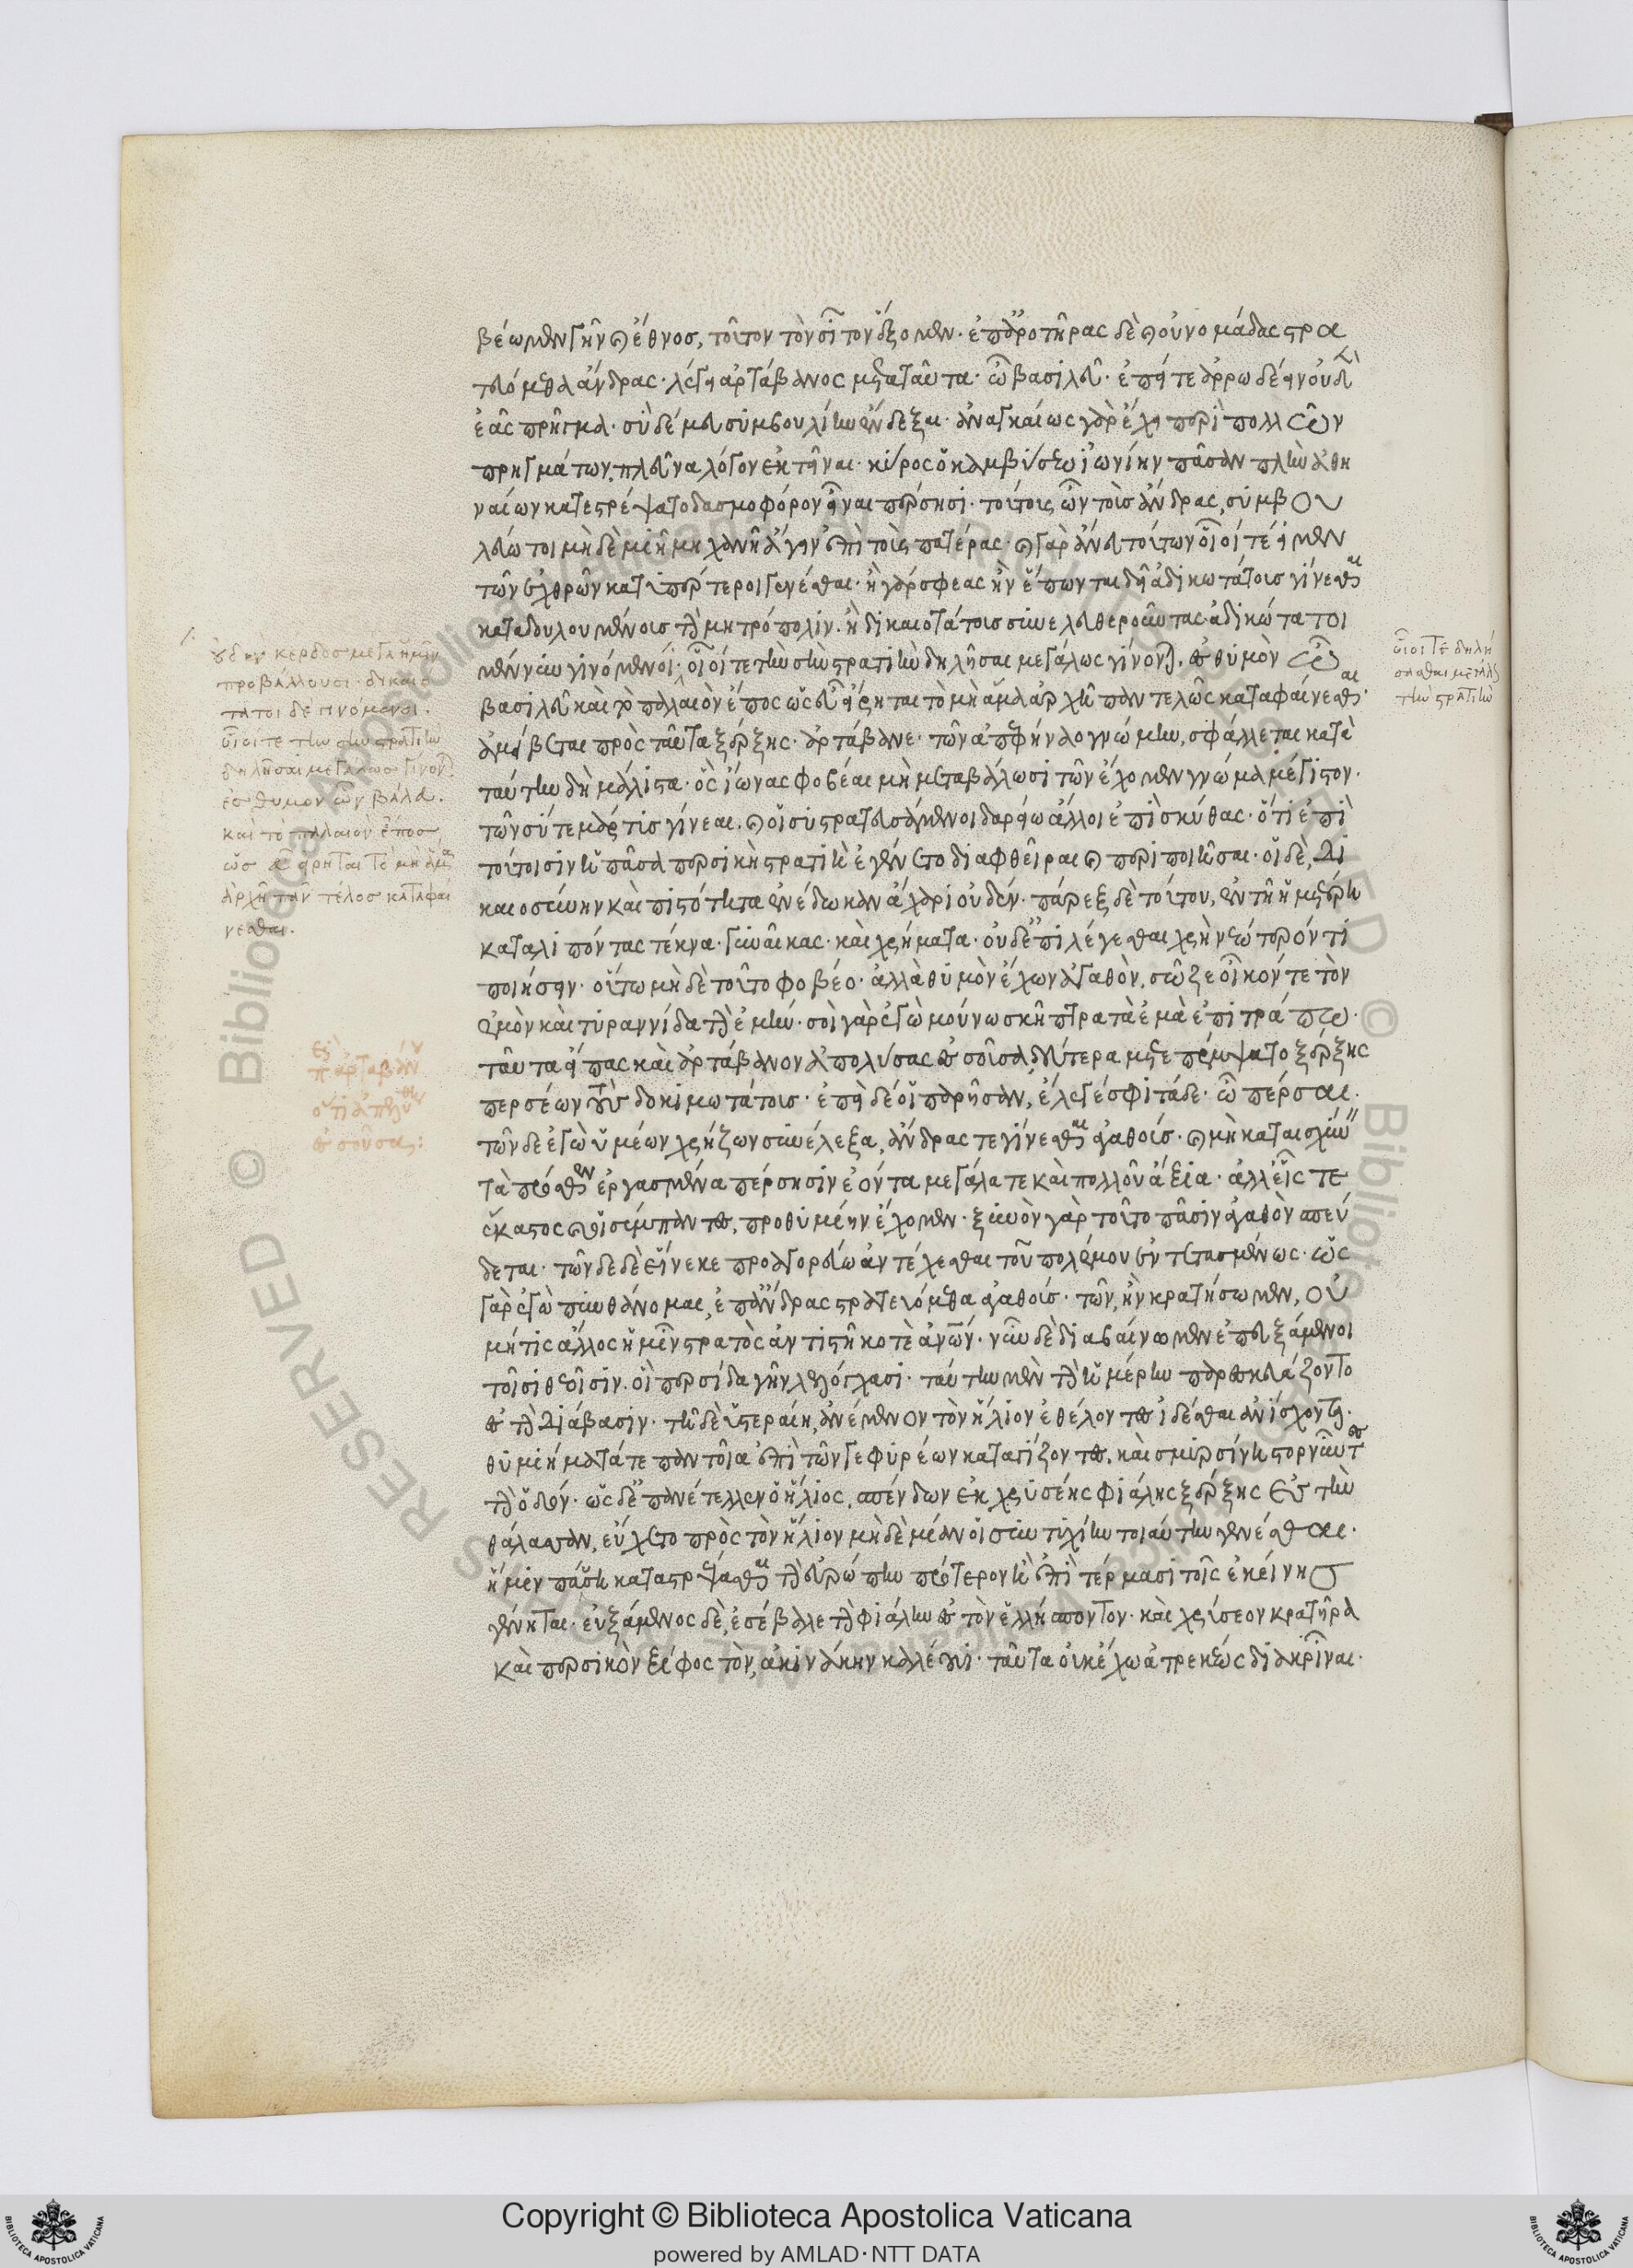 βέωμεν γῆν καὶ ἔθνος, τούτων τὸν σῖτον ἕξομεν· ἐπ' ἀροτῆρας δὲ καὶ οὐ νομάδας στρα
τευόμεθα ἄνδρας· λέγει ἀρτάβανος μετὰ ταῦτα· ὦ βασιλεῦ· ἐπεί τε ἀρρωδέειν οὐδὲν
ἐᾷς πρῆγμα· σὺ δέ μευ συμβουλίην ἔνδεξαι· ἀναγκαίως γὰρ ἔχει περὶ πολλῶν
πρηγμάτων, πλεῦνα λόγον ἐκτεῖναι· κῦρος ὁ καμβύσεω ἰωνίην πᾶσαν πλὴν ἀθη
ναίων κατεστρέψατο δασμοφόρον εἶναι πέρσῃσι· τούτους ὦν τοὺς ἄνδρας, συμβου
λεύω τοι μηδεμιῇ μηχανῇ ἄγειν ἐπὶ τοὺς πατέρας· καὶ γὰρ ἄνευ τούτων οἷοί τέ εἰμεν
τῶν ἐχθρῶν κατυπέρτεροι γενέσθαι· ἢ γάρ σφεας ἢν ἕπωνται δεῖ ἀδικωτάτους γίνεσθαι
καταδουλουμένους τὴν μητρόπολιν· ἢ δικαιοτάτους συνελευθεροῦντας· ἀδικώτατοι
μέν νυν γινόμενοι· οἷοί τε τὴν σὴν στρατιὴν δηλῆσαι μεγάλως γίνονται. ἐς θυμὸν ὦν
βασιλεῦ καὶ τὸ παλαιὸν ἔπος ὡς εὖ εἴρηται τὸ μὴ ἅμα ἀρχῇ πᾶν τέλος καταφαίνεσθαι·
ἀμείβεται πρὸς ταῦτα ξέρξης· ἀρτάβανε· τῶν ἀπεφήναο γνώμην, σφάλλεαι κατὰ
ταύτην δὴ μάλιστα· ὃς ἴωνας φοβέαι μὴ μεταβάλωσι τῶν ἔχομεν γνῶμα μέγιστον·
τῶν σύ τε μάρτις γίνεαι, καὶ οἱ συστρατευσάμενοι δαρείω ἄλλοι ἐπὶ σκύθας· ὅτι ἐπὶ
τούτοισιν ἡ πᾶσα περσικὴ στρατιὴ ἐγένετο διαφθεῖραι καὶ περιποιῆσαι· οἱ δὲ, δι
καιοσύνην καὶ πιστότητα ἐνέδωκαν ἄχαρι οὐδέν· πάρεξ δὲ τούτου, ἐν τῇ ἡμετέρῃ
καταλιπόντας τέκνα· γυναῖκας· καὶ χρήματα· οὐδ' ἐπιλέγεσθαι χρὴ νεώτερόν τι
ποιήσειν· οὕτω μηδὲ τοῦτο φοβέο· ἀλλὰ θυμὸν ἔχων ἀγαθὸν, σῶζε οἶκόν τε τὸν
ἐμὸν καὶ τυραννίδα τὴν ἐμήν· σοὶ γὰρ ἐγὼ μούνω σκῆπτρα τὰ ἐμὰ ἐπιτράπω·
ταῦτα εἴπας καὶ ἀρτάβανον ἀπολύσας ἐς σοῦσα, δεύτερα μετεπέμψατο ξέρξης
περσέων τοὺς δοκιμωτάτους· ἐπεὶ δέ οἱ παρῆσαν, ἔλεγέ σφι τάδε· ὦ πέρσαι·
τῶνδε ἐγὼ ὑμέων χρηίζων συνέλεξα, ἄνδρας τε γίνεσθαι ἀγαθούς· καὶ μὴ καταισχύνειν
τὰ πρόσθεν ἐργασμένα πέρσῃσιν ἐόντα μεγάλα τε καὶ πολλοῦ ἄξια· ἀλλ' εἷς τε
ἕκαστος καὶ οἱ σύμπαντες, προθυμίην ἔχομεν· ξυνὸν γὰρ τοῦτο πᾶσιν ἀγαθὸν σπεύ
δεται· τῶνδε δὲ εἵνεκε προαγορεύω ἀντέχεσθαι τοῦ πολέμου ἐντεταμένως· ὡς
γὰρ ἐγὼ πυνθάνομαι, ἐπ' ἄνδρας στρατευόμεθα ἀγαθούς· τῶν, ἢν κρατήσωμεν, οὐ
μήτις ἄλλος ἡμῖν στρατὸς ἀντιστῇ κοτὲ ἀνων· νῦν δὲ διαβαίνωμεν ἐπευξάμενοι
τοῖσι θεοῖσιν. οἳ περσίδα γῆν λελόγχασι· ταύτην μὲν τὴν ἡμέρην παρεσκευάζοντο
ἐς τὴν διάβασιν· τῇ δὲ ὑστεραίῃ, ἀνέμενον τὸν ἥλιον ἐθέλοντες ἰδέσθαι ἀνίσχοντα·
θυμιήματά τε παντοῖα ἐπὶ τῶν γεφυρέων καταγίζοντες, καὶ σμυρσίνῃ στορνῦντες
τὴν ὁδόν· ὡς δ' ἐπανέτελλεν ὁ ἥλιος, σπένδων ἐκ χρυσέης φιάλης ξέρξης ἐς τὴν
θάλασσαν, εὔχετο πρὸς τὸν ἥλιον μηδεμίαν οἱ συντυχίην τοιαύτην γενέσθαι·
ἥ μιν παύσῃ καταστρέψασθαι τὴν εὐρώπην πρότερον ἢ ἐπὶ τέρμασι τοῖς ἐκείνης
γένηται· εὐξάμενος δὲ, ἐσέβαλε τὴν φιάλην ἐς τὸν ἑλλήσποντον· καὶ χρύσεον κρατῆρα
καὶ περσικὸν ξίφος τὸν, ἀκινάκην καλέουσι· ταῦτα οὐκ ἔχω ἀτρεκέως διακρῖναι·
οὐδὲν κέρδος μέγα ἡμῖν
προβάλλουσι· δικαιό
τατοι δὲ γινόμενοι.
οἷοί τε τὴν σὴν στρατιὴν
δηλῆσαι μεγάλως γίνονται
ἐς θυμὸν ὦν βάλευ.
καὶ τὸ παλαιὸν ἔπος
ὡς εὖ εἴρηται τὸ μὴ ἅμα
ἀρχῇ πᾶν τέλος καταφαί
νεσθαι.
οἷοί τε δηλή
σασθαι μεγάλως
τὴν στρατιὴν
ἐς σοῦσα:
Copyright © Biblioteca Apostolica Vaticana
powered by AMLAD·NTT DATA